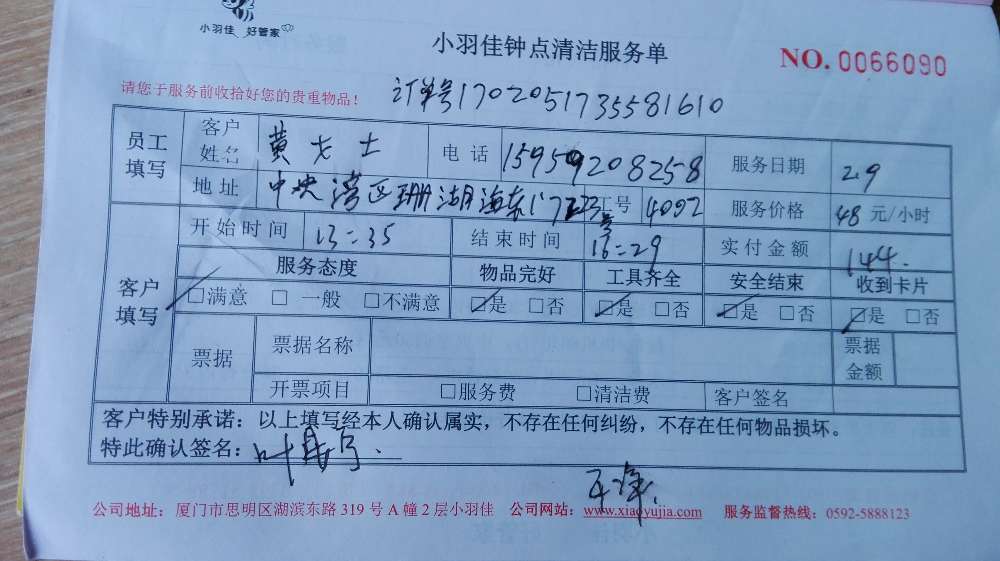 小羽佳 好管家
小羽佳钟点清洁服务单
NO. 0066090
请您于服务前收拾好您的贵重物品！
订单号1702051735581610
员工填写 客户姓名 黄女士 电话 15959208258 服务日期 2.9
地址 中央湾区珊瑚海东 工号 4092 服务价格 48 元/小时
客户填写 开始时间 13:35 结束时间 16:29 实付金额 144.
服务态度 物品完好 工具齐全 安全结束 收到卡片
□满意 □一般 □不满意 □是 □否 □是 □否 □是 □否 □是 □否
票据 票据名称 票据金额
开票项目 □服务费 □清洁费 客户签名
客户特别承诺：以上填写经本人确认属实，不存在任何纠纷，不存在任何物品损坏。
特此确认签名：
公司地址：厦门市思明区湖滨东路 319 号 A 幢 2 层小羽佳 公司网站：www.xiaoyujia.com 服务监督热线：0592-5888123